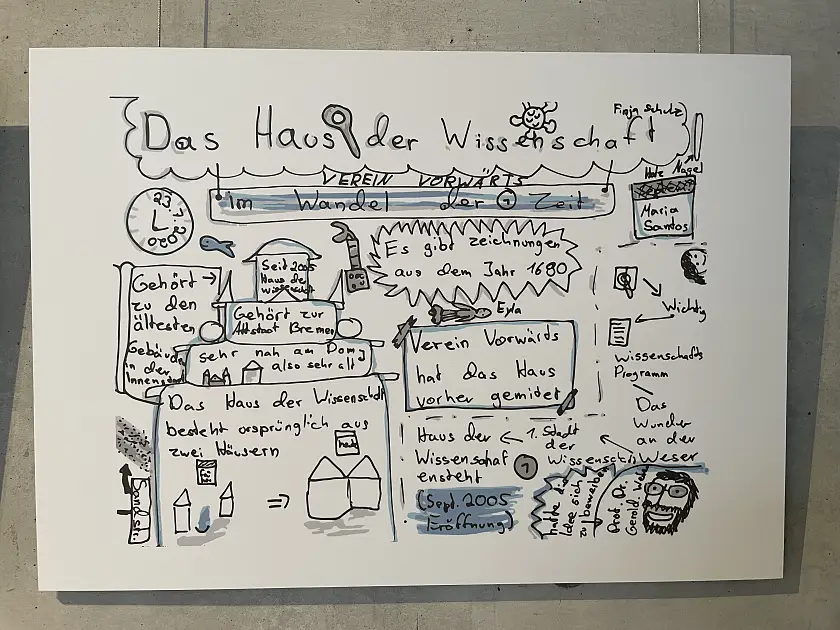 Das Haus der Wissenschaft
Finja Schulz
VEREIN VORWÄRTS
Im Wandel der Zeit
23.7.2020
Nagel
Maria
Santos
Es gibt zeichnungen
aus dem Jahr 1680
Seit 2005
Haus der
Wissenschaft
Gehört
zu den
ältesten
Gebäude
in der
Innenstadt
Gehört zur
Altstaat Bremen
sehr nah am Dom
also sehr alt
Das Haus der Wissenschaft
besteht orsprünglich aus
zwei Häusern
heute
Sandstr.
Verein Vorwärts
hat das Haus
vorher gemitet
Wichtig
Wissenschafts
Programm
Das
Wunder
an der
Weser
1. Stadt
der
Wissenschaft
Haus der
Wissenschaf
ensteht
(Sept. 2005
Eröffnung)
1
hatte die
Idee sich
zu bewerben
Prof. Dr.
Gerold